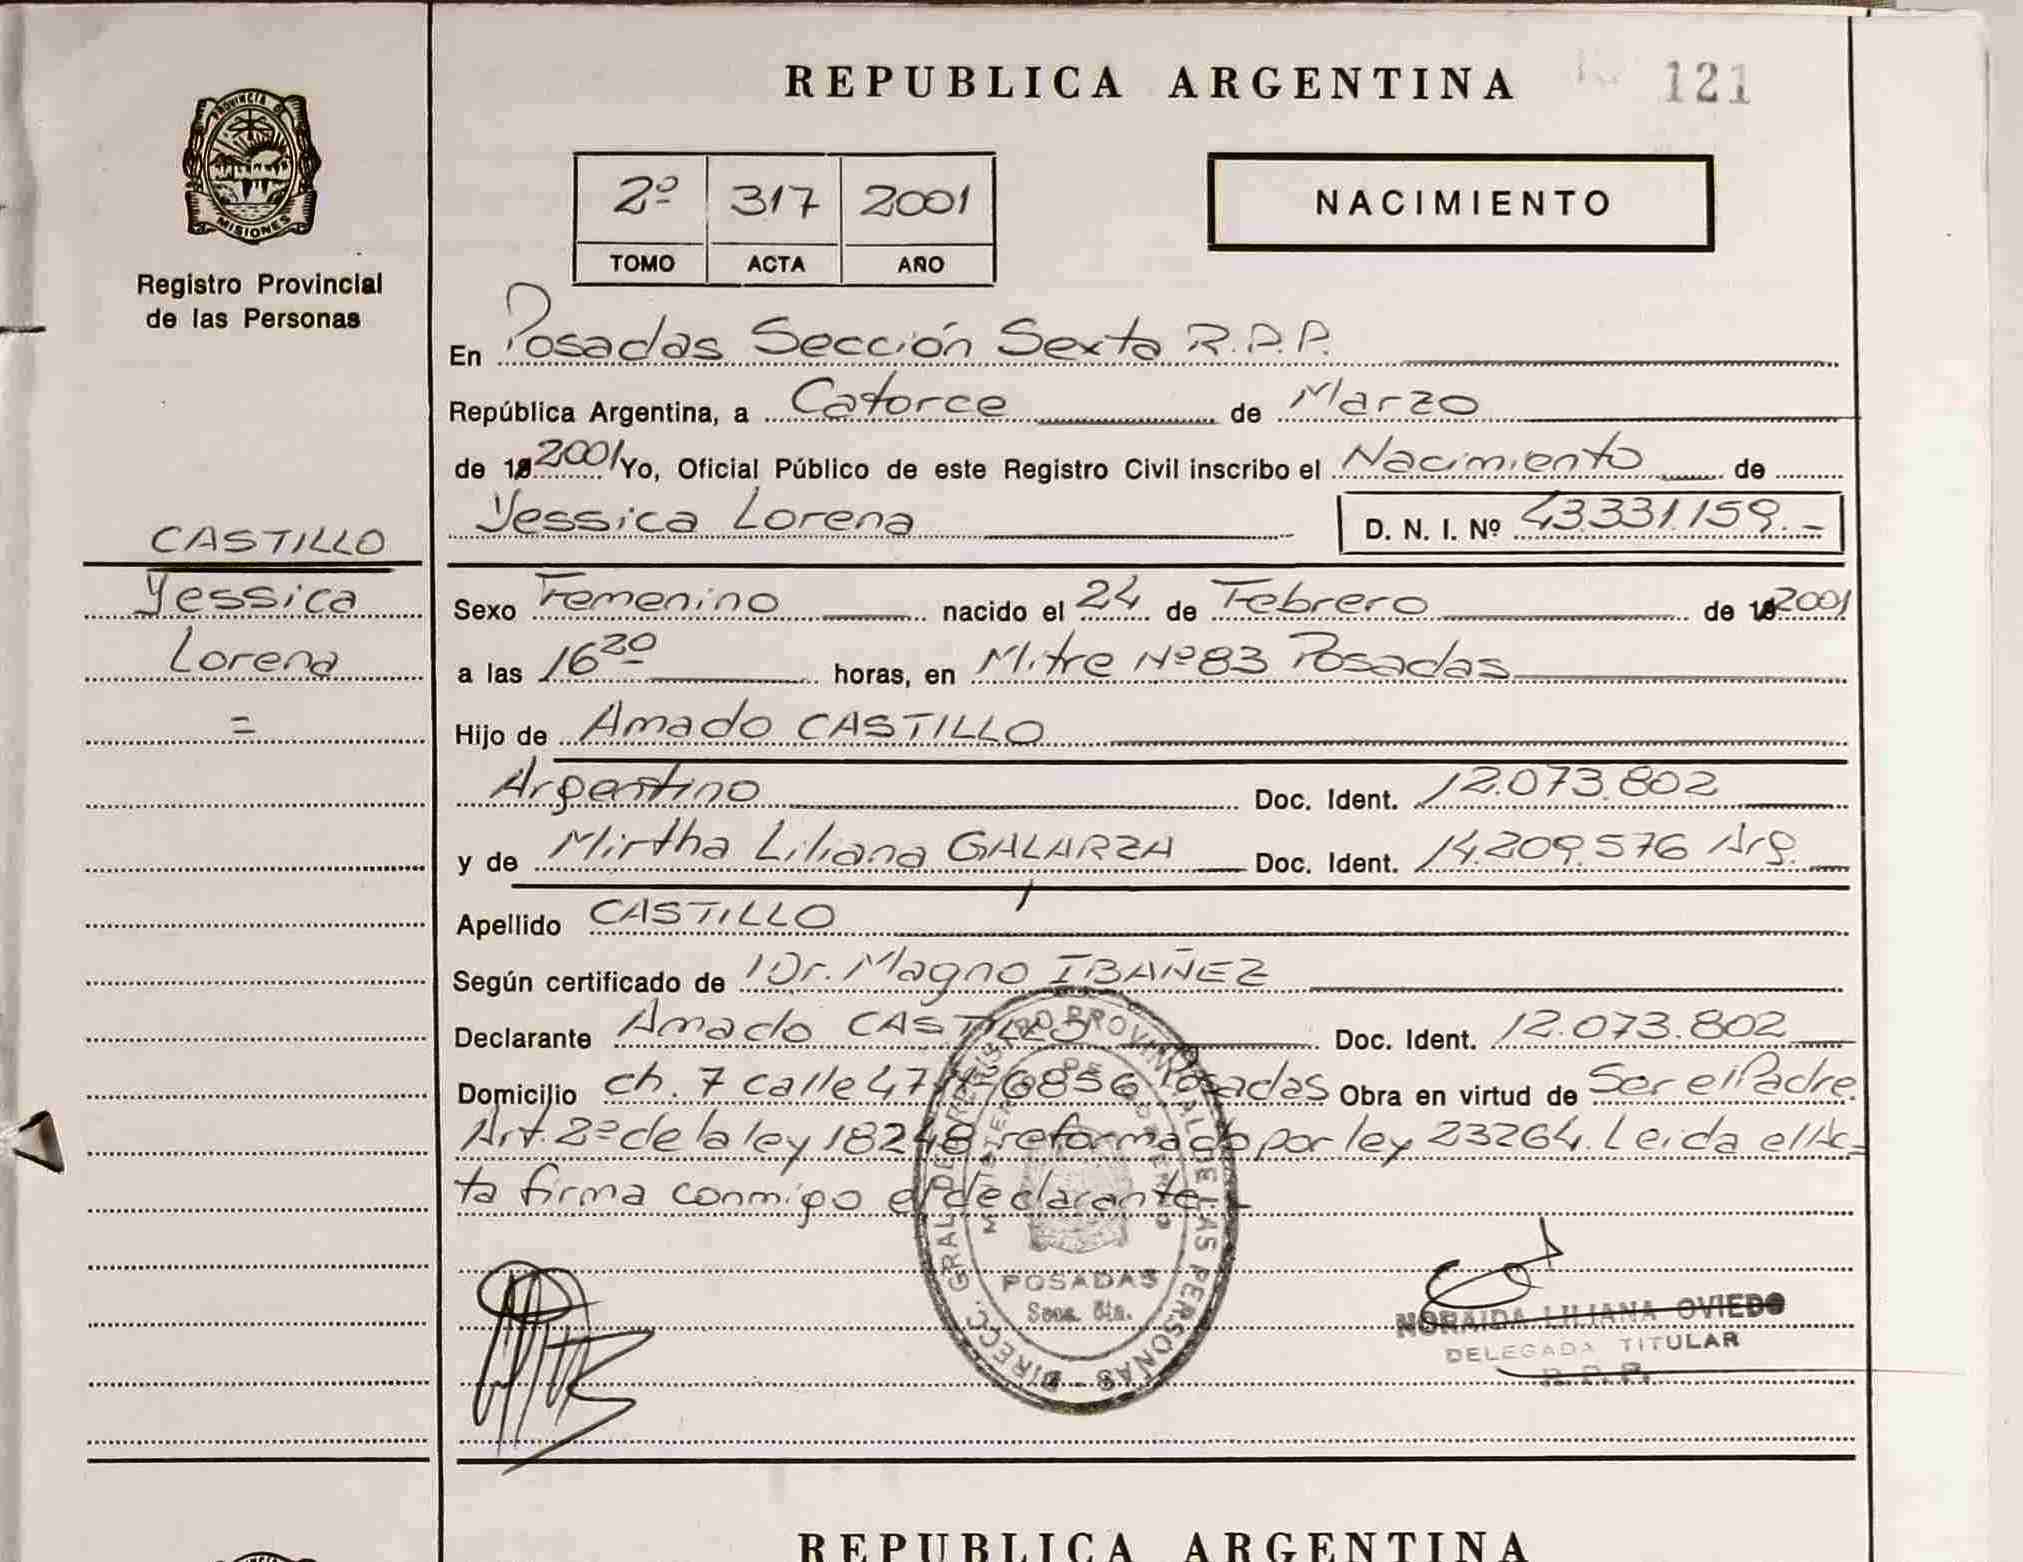 REPUBLICA ARGENTINA
121
PROVINCIA DE
MISIONES
Registro Provincial
de las Personas
2º 317 2001
TOMO ACTA AÑO
NACIMIENTO
En Posadas Sección Sexta R.P.P.
República Argentina, a Catorce de Marzo
de 19 2001 Yo, Oficial Público de este Registro Civil inscribo el Nacimiento de
Yessica Lorena D. N. I. Nº 43.331.159.-
CASTILLO
Yessica
Lorena
=
Sexo Femenino nacido el 24 de Febrero de 19 2001
a las 16 30 horas, en Mitre Nº 83 Posadas
Hijo de Amado CASTILLO
Argentino Doc. Ident. 12.073.802
y de Mirtha Liliana GALARZA Doc. Ident. 14.209.576 Arg.
Apellido CASTILLO
Según certificado de Dr. Magno IBAÑEZ
Declarante Amado CASTILLO Doc. Ident. 12.073.802
Domicilio ch. 7 calle 47 Nº 6856 Posadas Obra en virtud de Ser el Padre.
Art. 2º de la ley 18248 reformado por ley 23264. Leida el Ac=
ta firma conmigo el declarante.-
DIRECC. GRAL DE REGISTRO PROVINCIAL DE LAS PERSONAS
MINISTERIO DE GOBIERNO
POSADAS
Secc. 6ta.
NORAIDA LILIANA OVIEDO
DELEGADA TITULAR
R. P. P.
REPUBLICA ARGENTINA